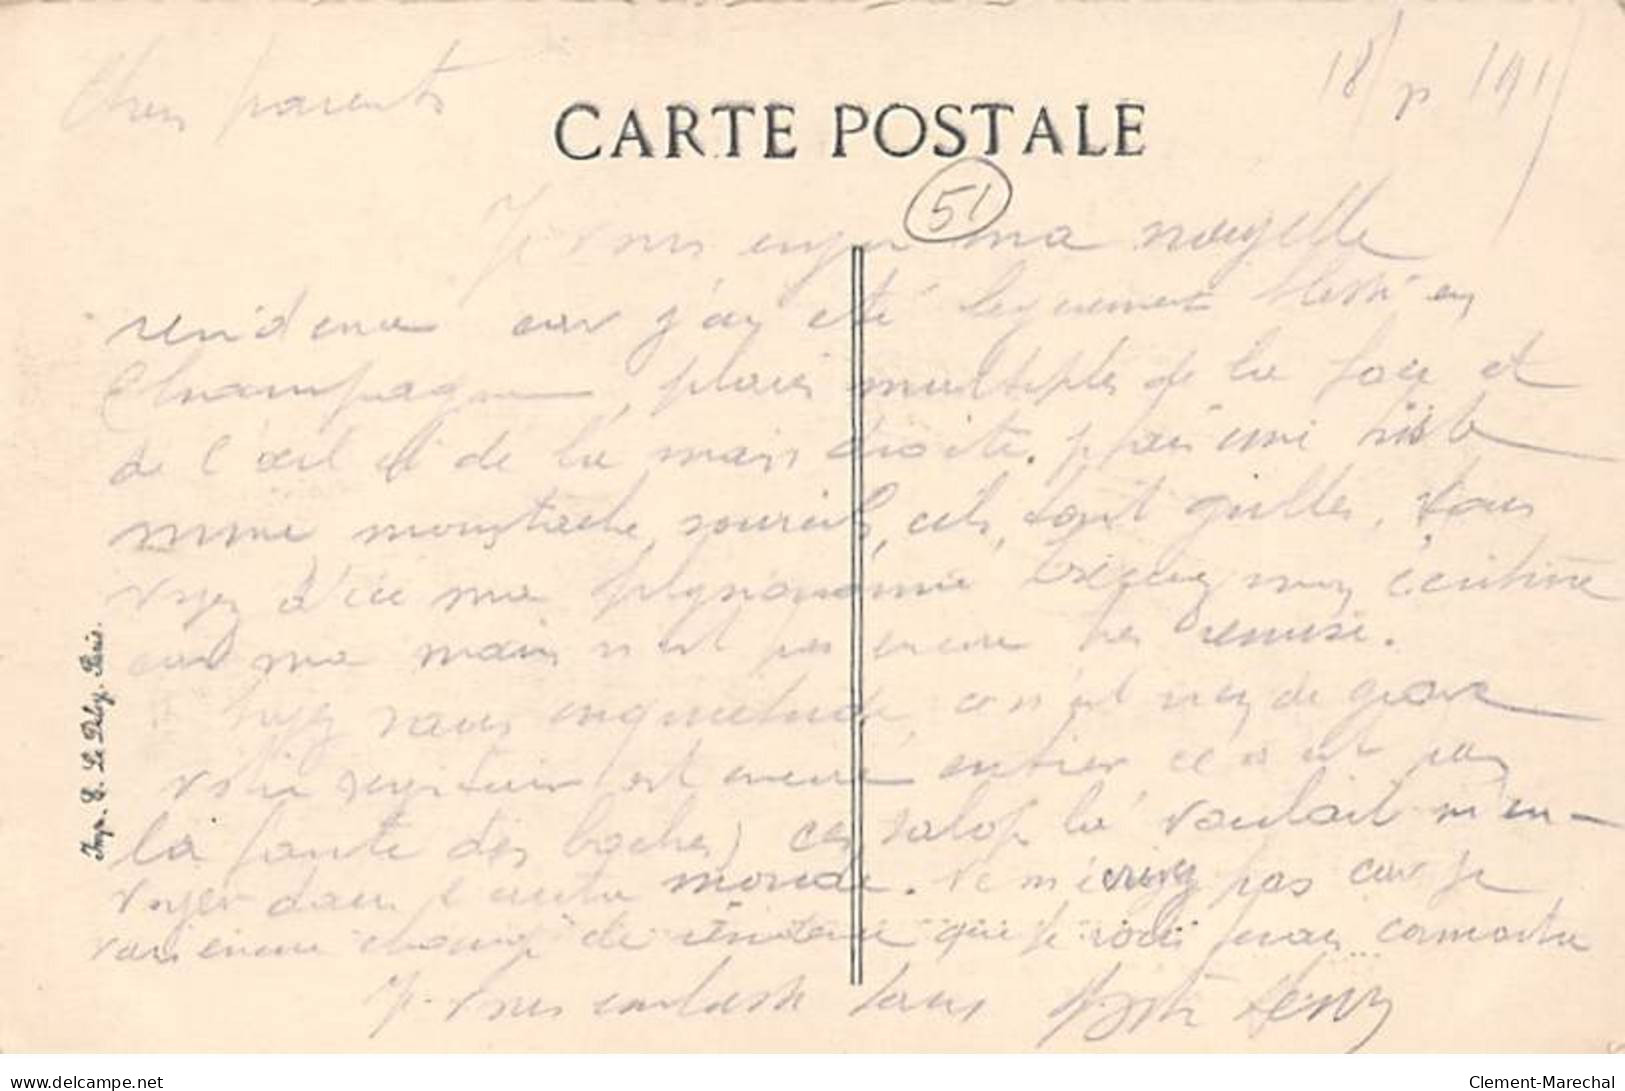 Chers parents
CARTE POSTALE
18/
51
Je vous envoi ma nouvelle
residence car j'ai été legerement blessé en
Champagne, plaies multiples de la face et
de l'œil et de la main droite. j'ai une triste
mine moustache, sourcils, cils, tout grillés, vous
voyez d'ici ma physionomie excusez mon écriture
car ma main n'est pas encore très remise.
soyez sans inquietude, ce n'est rien de grave
votre est encore entier ce n'est pas
la faute des boches, ces salop la voulait m'en-
voyer dans l'autre monde. ne m'écrivez pas car je
vais encore changer de résidence que je vous ferai connaitre
Je vous embrasse tous Henry
Imp. E. Le Deley, Paris.
delcampe.net
Clement-Marechal